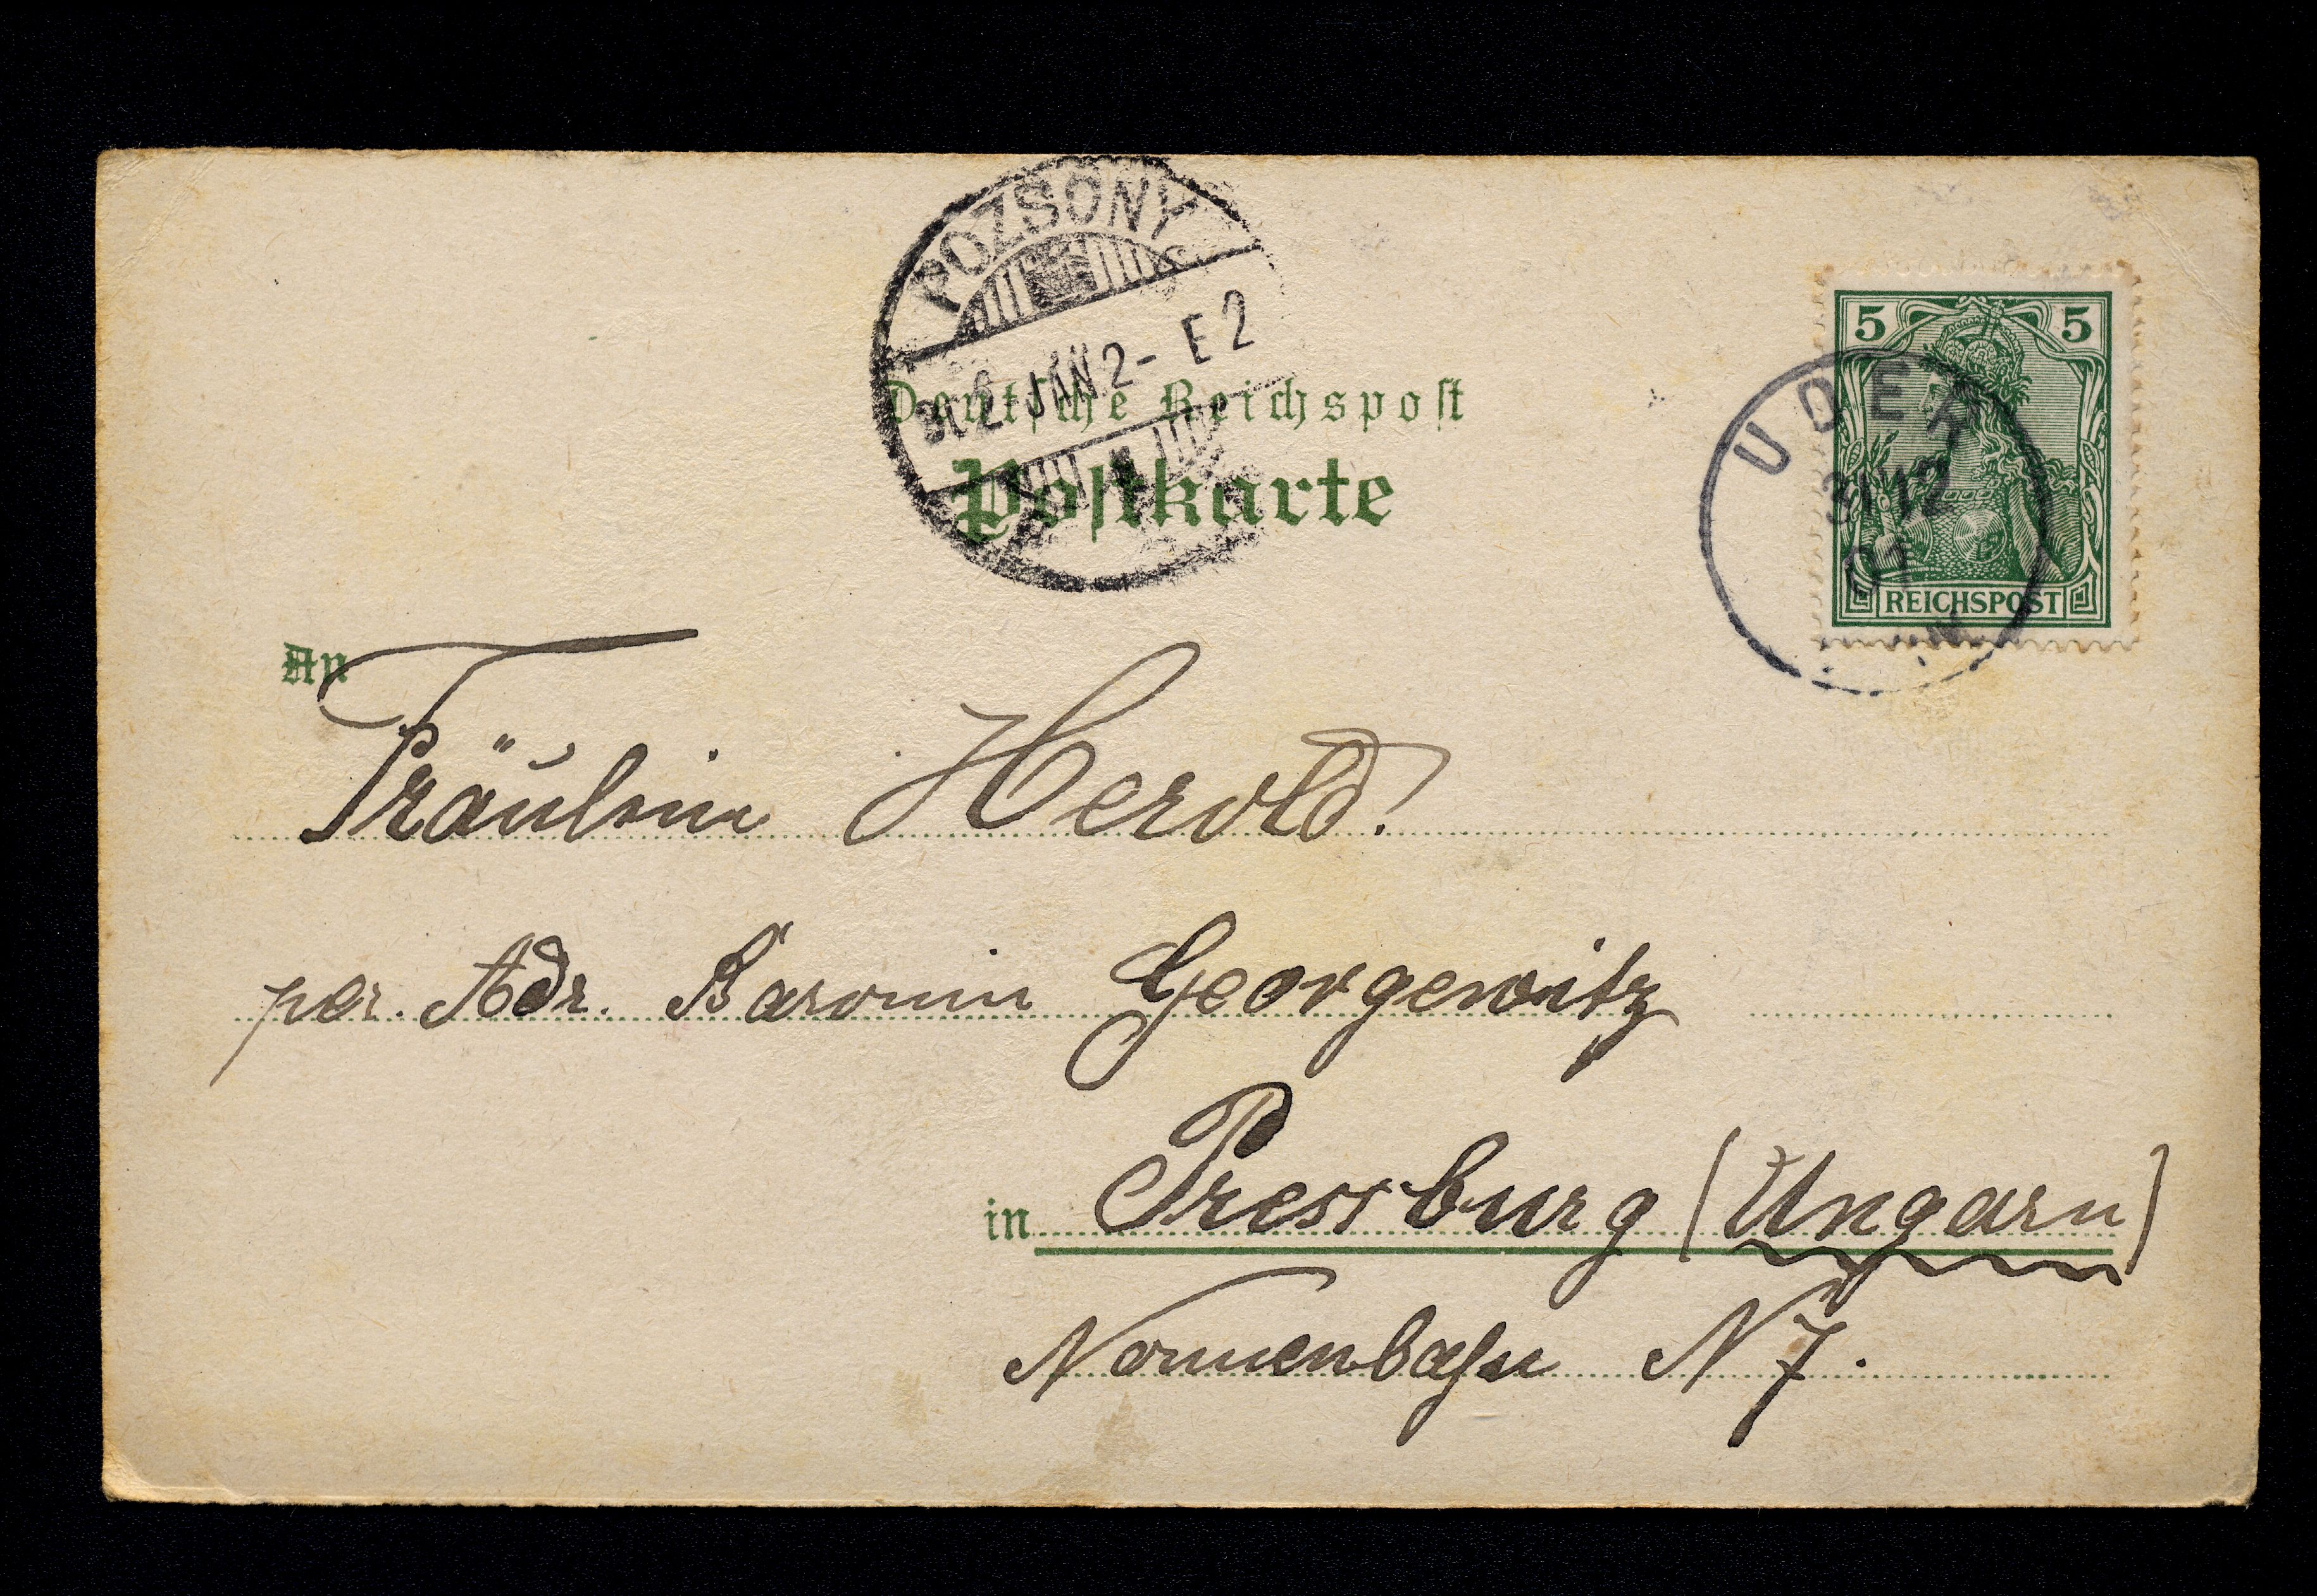 POZSONY
902 JAN 2 - E 2
Deutsche Reichspost
Postkarte
5 5
UDER
31 12
01
REICHSPOST
An
Fräulein Herold!
per. Adr. Baronin Georgewitz
in Pressburg (Ungarn)
Nonnenbahn N 7.